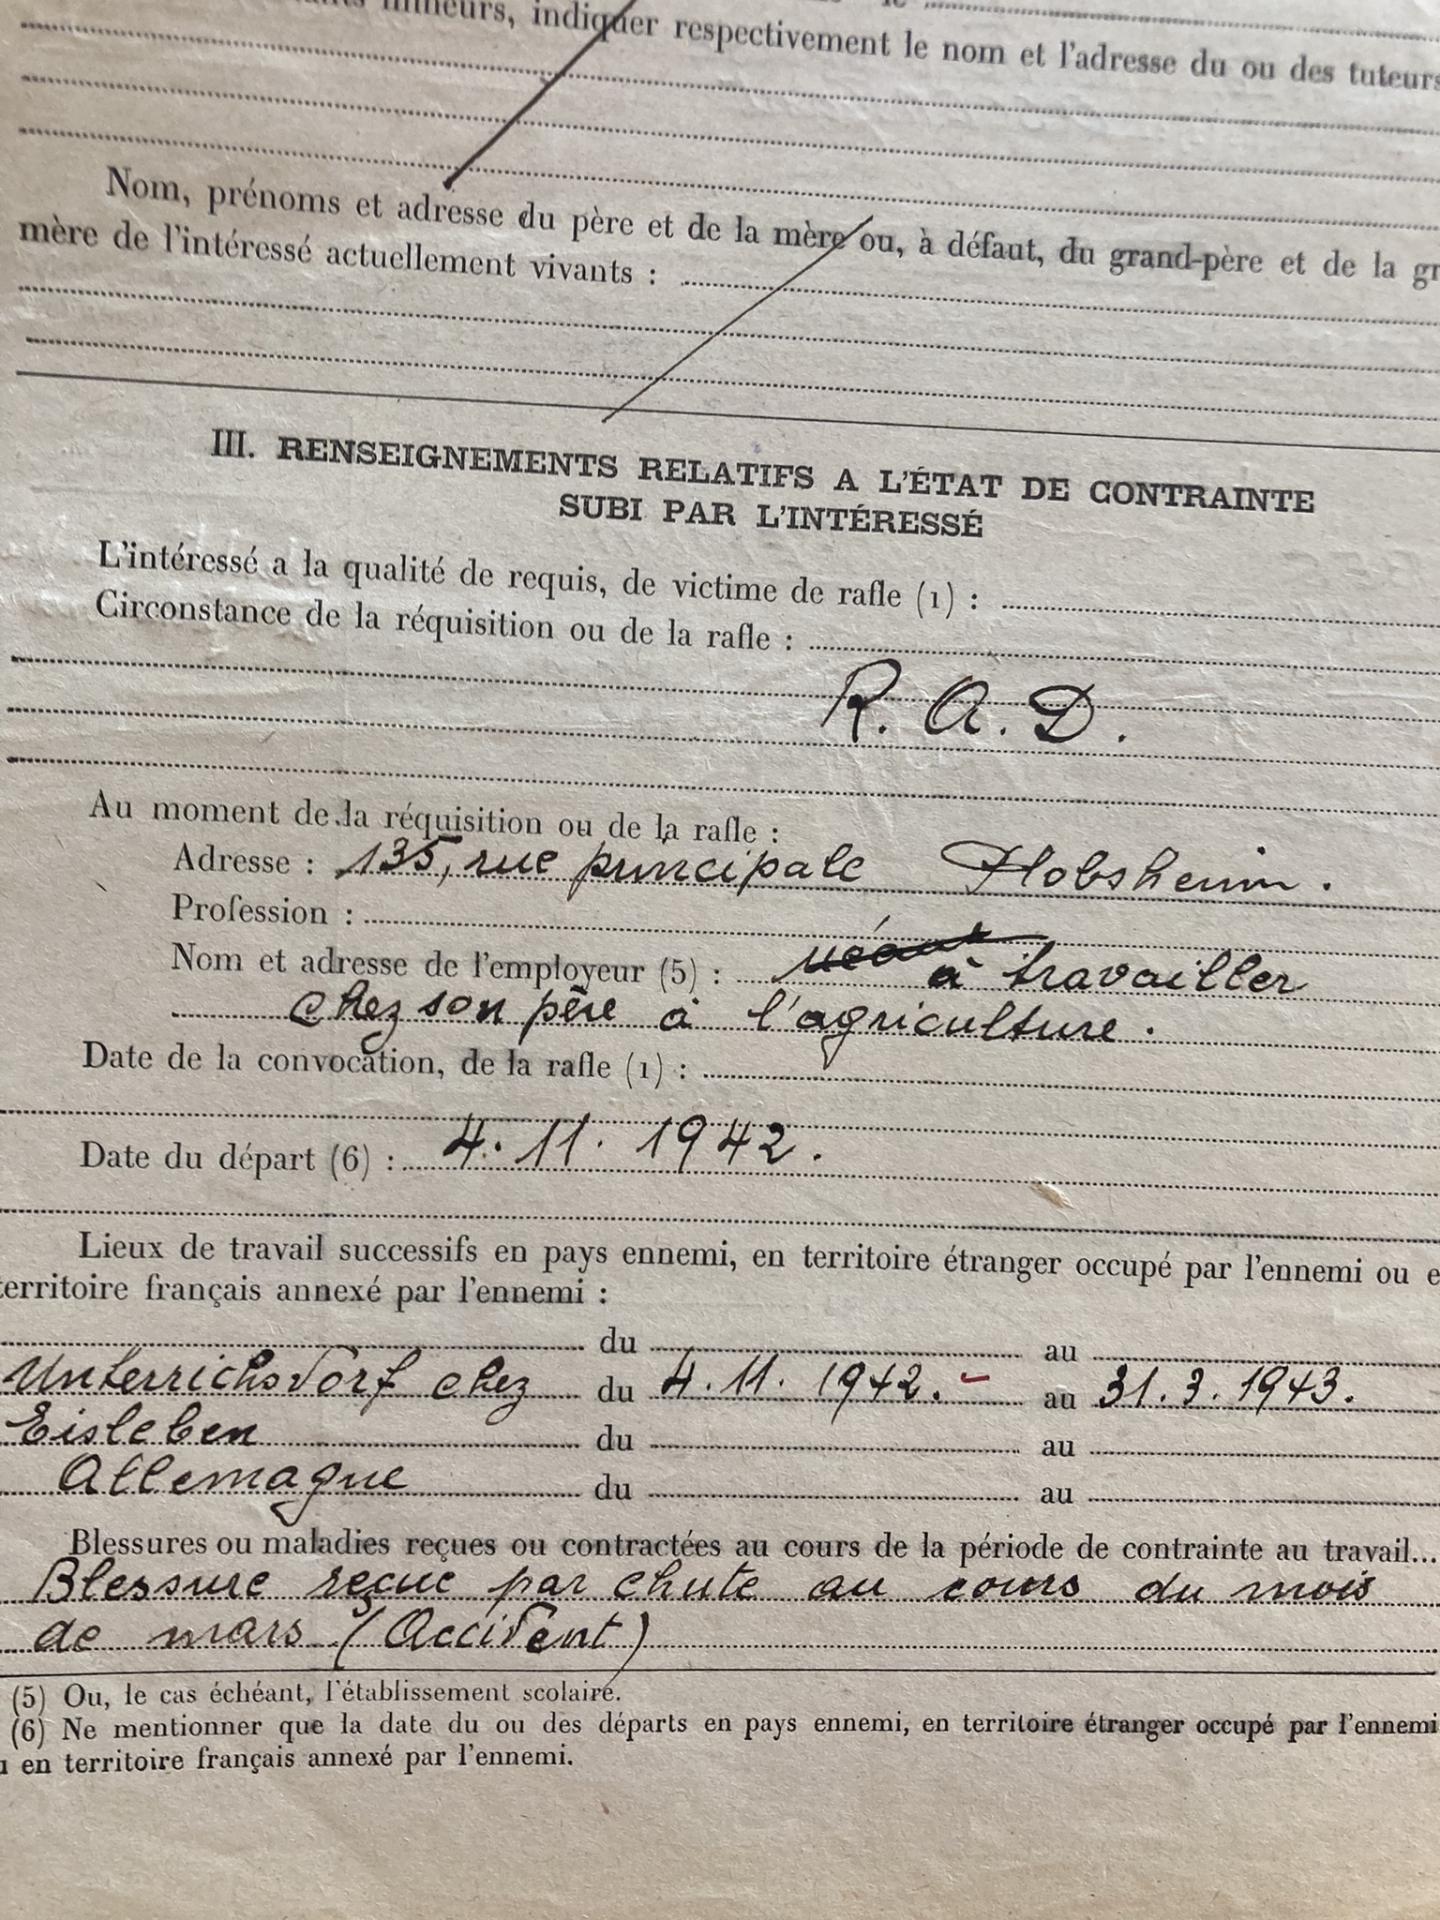 mineurs, indiquer respectivement le nom et l'adresse du ou des tuteurs
Nom, prénoms et adresse du père et de la mère ou, à défaut, du grand-père et de la gr
mère de l'intéressé actuellement vivants :
III. RENSEIGNEMENTS RELATIFS A L'ÉTAT DE CONTRAINTE
SUBI PAR L'INTÉRESSÉ
L'intéressé a la qualité de requis, de victime de rafle (1) :
Circonstance de la réquisition ou de la rafle :
R. A. D.
Au moment de la réquisition ou de la rafle :
Adresse : 135, rue principale Plobsheim.
Profession :
Nom et adresse de l'employeur (5) : néant à travailler
chez son père à l'agriculture.
Date de la convocation, de la rafle (1) :
Date du départ (6) : 4. 11. 1942.
Lieux de travail successifs en pays ennemi, en territoire étranger occupé par l'ennemi ou e
territoire français annexé par l'ennemi :
du au
Unterrichsdorf chez du 4. 11. 1942. au 31. 3. 1943.
Eisleben du au
Allemagne du au
Blessures ou maladies reçues ou contractées au cours de la période de contrainte au travail...
Blessure reçue par chute au cours du mois
de mars (Accident)
(5) Ou, le cas échéant, l'établissement scolaire.
(6) Ne mentionner que la date du ou des départs en pays ennemi, en territoire étranger occupé par l'ennemi
en territoire français annexé par l'ennemi.